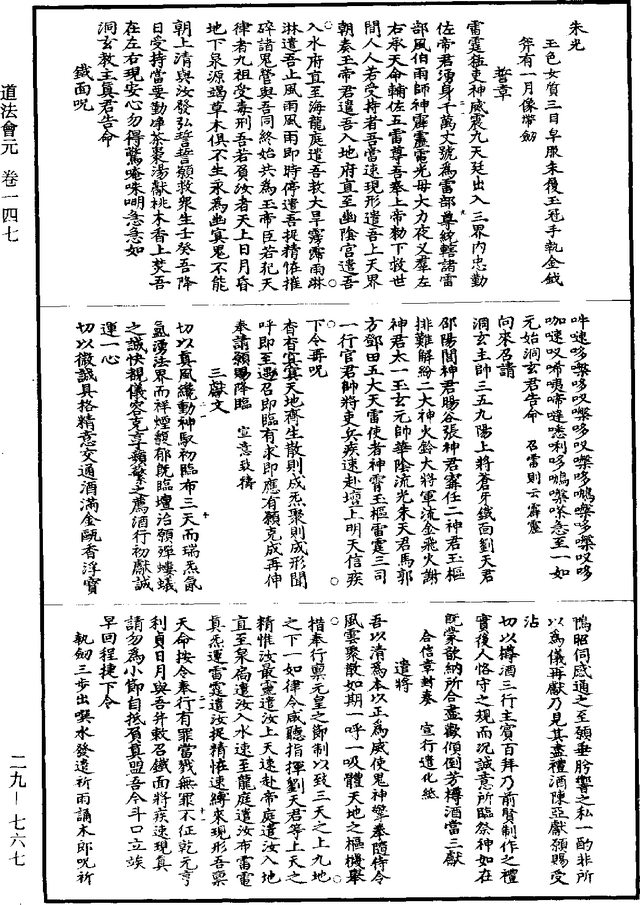 道法會元 卷一四七
二九—七六七
朱光
玉色女質三日皁服朱履玉冠手執金鉞
斧有一月像帶劒
誓章
雷霆猛吏神威震九天廷出入三界內忠勤
佐帝君湧身千萬丈號為雷部尊統轄諸雷
部風伯雨師神霹靂電光母大力夜叉羣左
右承天命輔佐五雷尊吾奉上帝勑下救世
間人人若受持者吾當速現形遣吾上天界
朝奏玉帝君遣吾入地府直至幽陰宮遣吾
入水府直至海龍庭遣吾救大旱霶霈雨淋
淋遣吾止風雨風雨即時停遣吾捉精怪摧
碎諸鬼營與吾同終始共為玉帝臣若犯天
律者九祖受毒刑吾若負汝者天上日月昏
地下泉源竭草木俱不生永為幽冥鬼不能
朝上清與汝發弘誓誓願救衆生壬癸吾降
日受持當要勤淨茶棗湯獻桃木香上焚吾
在左右現安心勿得驚唵咪吽急急如
洞玄教主真君告命
鐵面呪
元始洞玄君告命 召雷則云霹靂
向來召請
洞玄主帥三五九陽上將蒼牙鐵面劉天君
邵陽閻神君賜谷張神君寗任二神君玉樞
排難解紛二大神火鈴大將軍流金飛火謝
神君太一玉玄元帥華陰流光朱天君馬郭
方鄧田五大天雷使者神霄玉樞雷霆三司
一行官君帥將吏兵疾速赴壇上明天信疾
下令再呪
杳杳冥冥天地齊生散則成炁聚則成形聞
呼即至遇召即臨有求即應有願克成再伸
奉請願賜降臨 宣意致禱
三獻文
切以真風纔動神馭初臨布三天而瑞炁氤
氳湧法界而祥煙馥郁既臨壇治願殫螻蟻
之誠快覩儀容克享蘋蘩之薦酒行初獻誠
運一心
切以微誠具格精意交通酒滿金甌香浮寶
鴨昭伺感通之至願垂肹蠁之私一酌非所
以為儀再獻乃見其盡禮酒陳亞獻願賜受
沾
切以樽酒三行主賓百拜乃前賢制作之禮
實後人恪守之規而况誠意所臨祭神如在
既蒙歆納所合盡歡傾倒芳樽酒當三獻
合信章封奏 宣行遣化紙
遣將
吾以清為本以正為威使鬼神攣拳隨侍令
風雲聚散如期一呼一吸體天地之樞機舉
措奉行禀元皇之節制以致三天之上九地
之下一如律令咸聽指揮劉天君等上天之
精惟汝最靈遣汝上天速赴帝庭遣汝入地
直至泉扃遣汝入水速至龍庭遣汝布雷電
真炁運雷霆遣汝捉精怪速縛來現形吾禀
天命按令奉行有罪當戮無罪不征乾元亨
利貞日月與吾并敕召鐵面將疾速現真
請勿為小節自抵眉真盟吾今斗口立竢
早回程捷下令
執劒三步出噀水發遣祈雨誦木郎呪祈